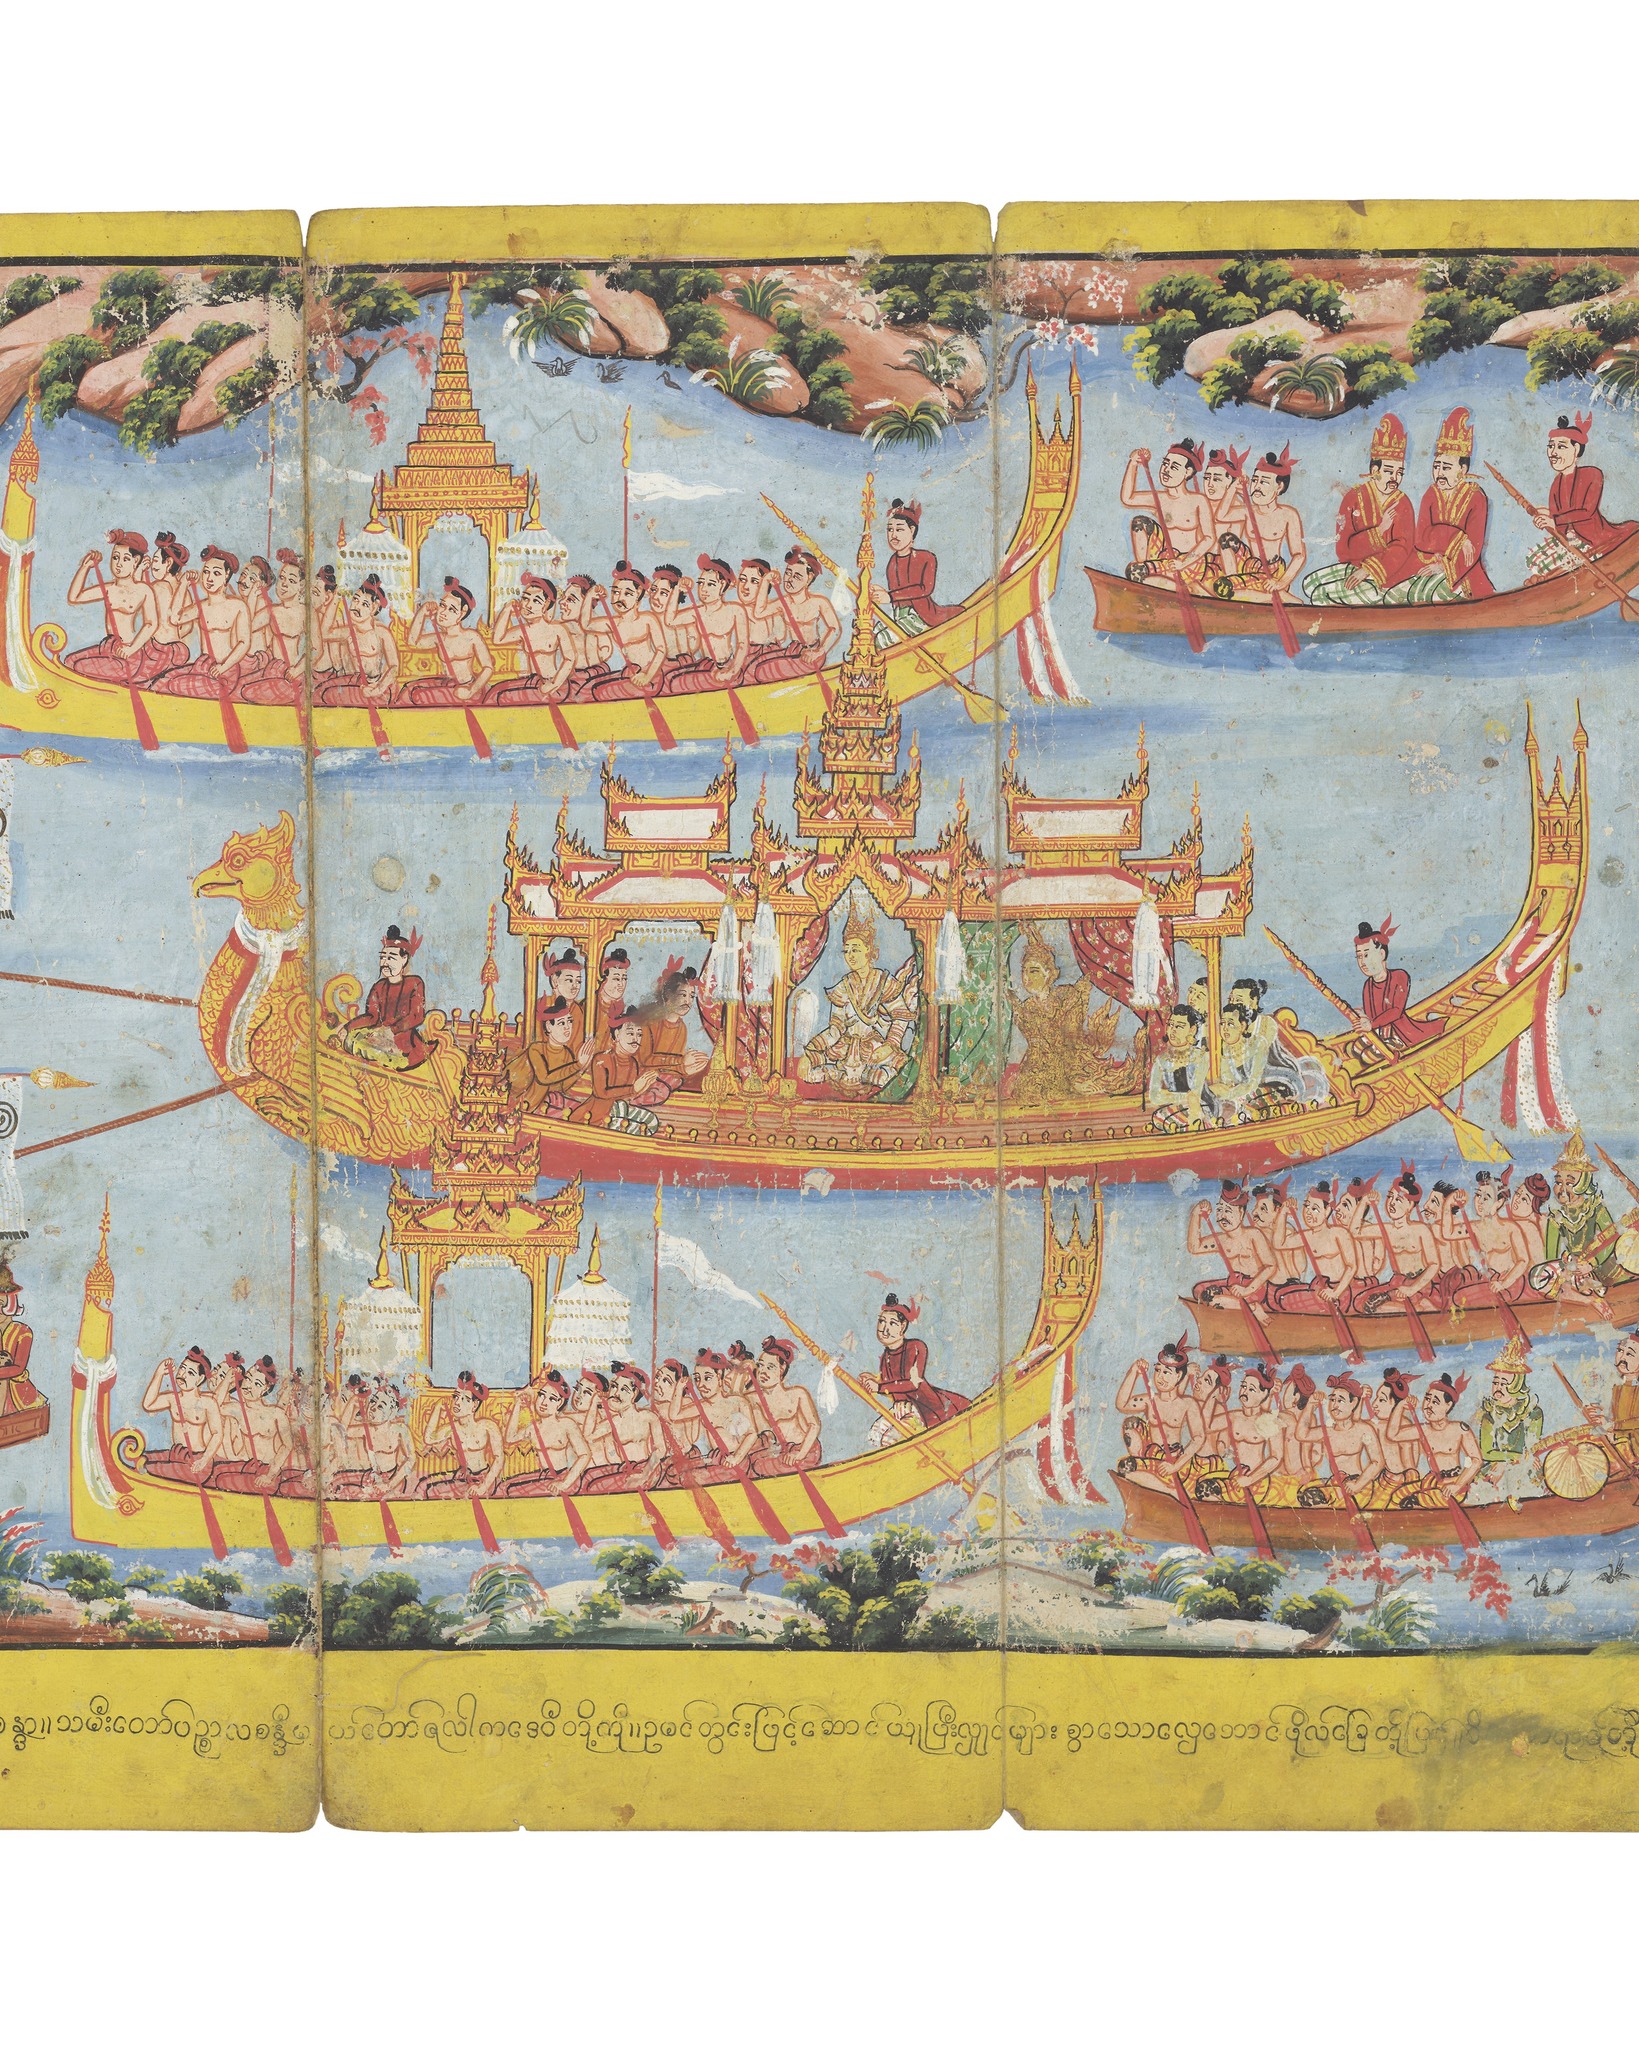 စန္ဒာ။သမီးတော်ပဉ္စာလစန္ဒီမယ်တော်ဇလါကဒေဝီတို့ကို။ဥမင်တွင်းဖြင့်ဆောင်ယူပြီးလျှင်များစွာသောလှေဘောင်ဖိုလ်ခြေတို့ဖြင့်